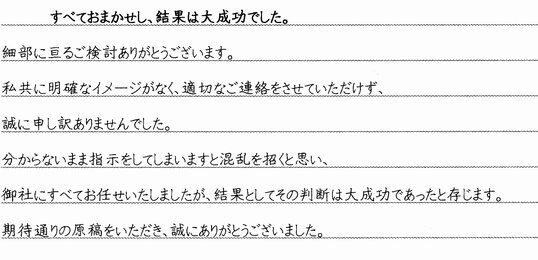 すべておまかせし、結果は大成功でした。
細部に亘るご検討ありがとうございます。
私共に明確なイメージがなく、適切なご連絡をさせていただけず、
誠に申し訳ありませんでした。
分からないまま指示をしてしまいますと混乱を招くと思い、
御社にすべてお任せいたしましたが、結果としてその判断は大成功であったと存じます。
期待通りの原稿をいただき、誠にありがとうございました。